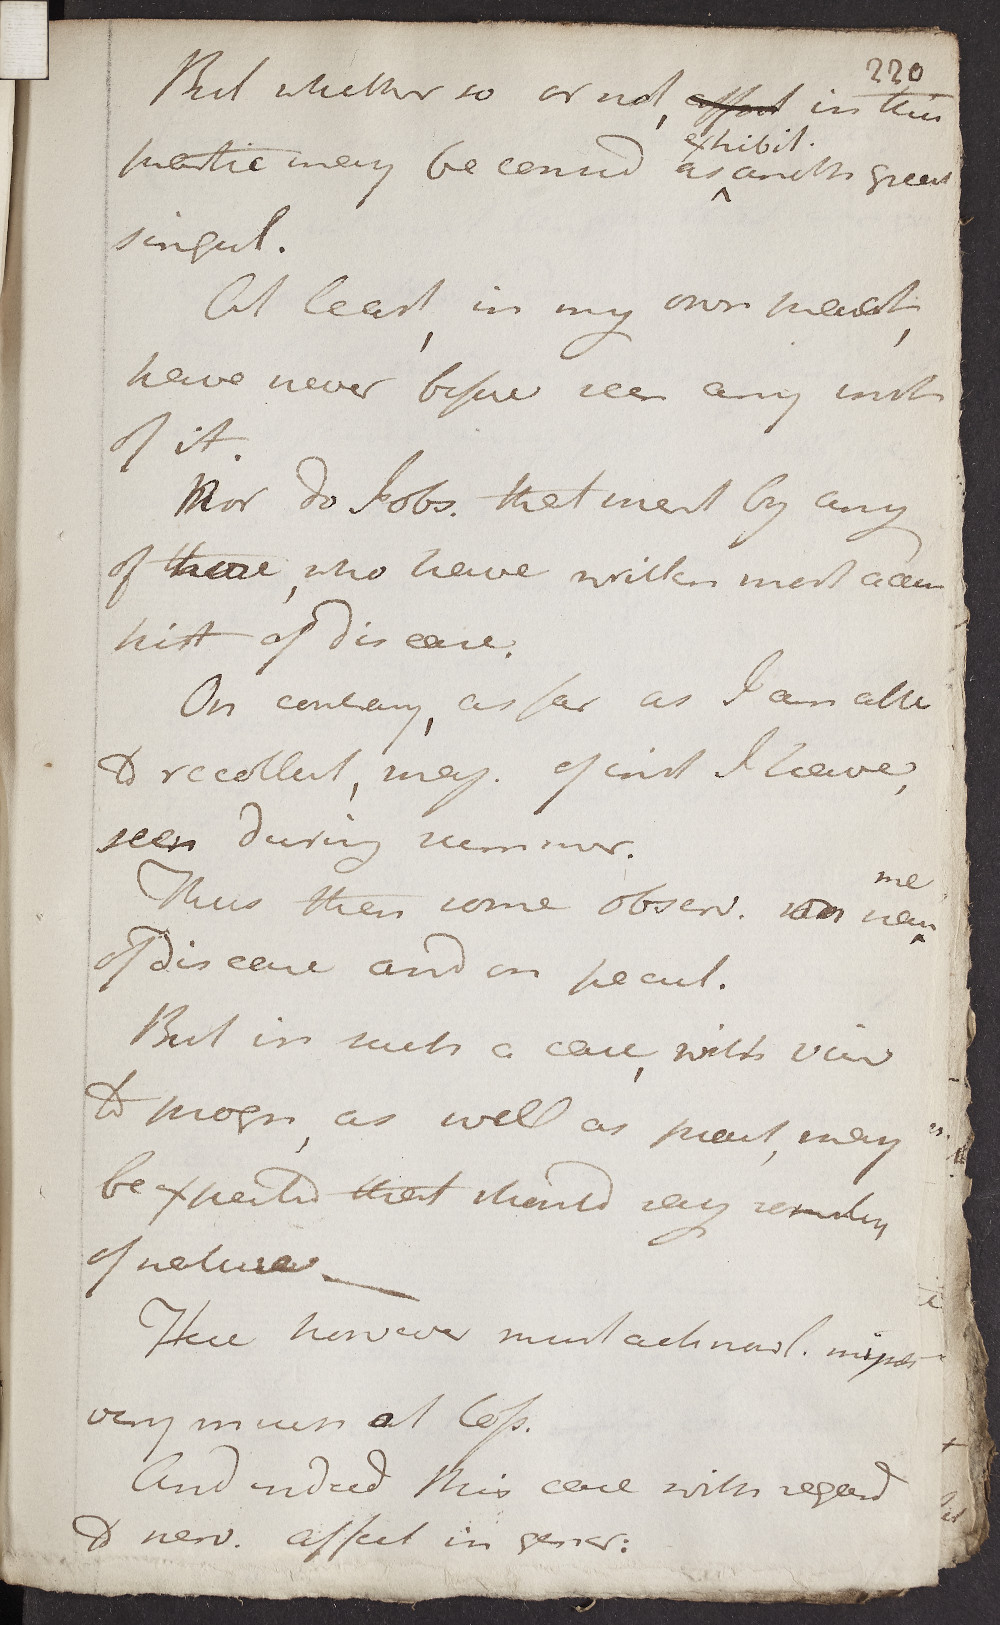 220
But whether so or not, affect in this
exhibit.
partic may be consid as anoth great
singul.
At least, in my own pract,
have never before seen any inst
of it.
Nor do I obs. that ment by any
of those, who have written most accu
hist of disease.
On contrary, as far as I am able
to recollect, maj. of inst I have,
seen during summer.
me
Thus then some observ. on nam
of disease and on pecul.
But in such a case, with view
to progn, as well as pract, may
be expected that should say
of nature
Here however must acknowl. myself
very much at loss.
And indeed this case with regard
to nerv. affect in gener: